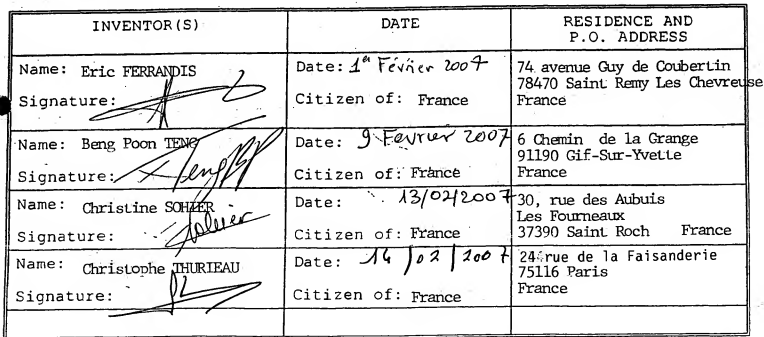 INVENTOR(S) DATE RESIDENCE AND P.O. ADDRESS
Name: Eric FERRANDIS
Signature:
Date: 1er Février 2007
Citizen of: France
74 avenue Guy de Coubertin
78470 Saint Remy Les Chevreuse
France
Name: Beng Poon TENG
Signature: TengBP
Date: 9 Fevrier 2007
Citizen of: France
6 Chemin de la Grange
91190 Gif-Sur-Yvette
France
Name: Christine SOHIER
Signature:
Date: 13/02/2007
Citizen of: France
30, rue des Aubuis
Les Fourneaux
37390 Saint Roch France
Name: Christophe THURIEAU
Signature:
Date: 14/02/2007
Citizen of: France
24 rue de la Faisanderie
75116 Paris
France